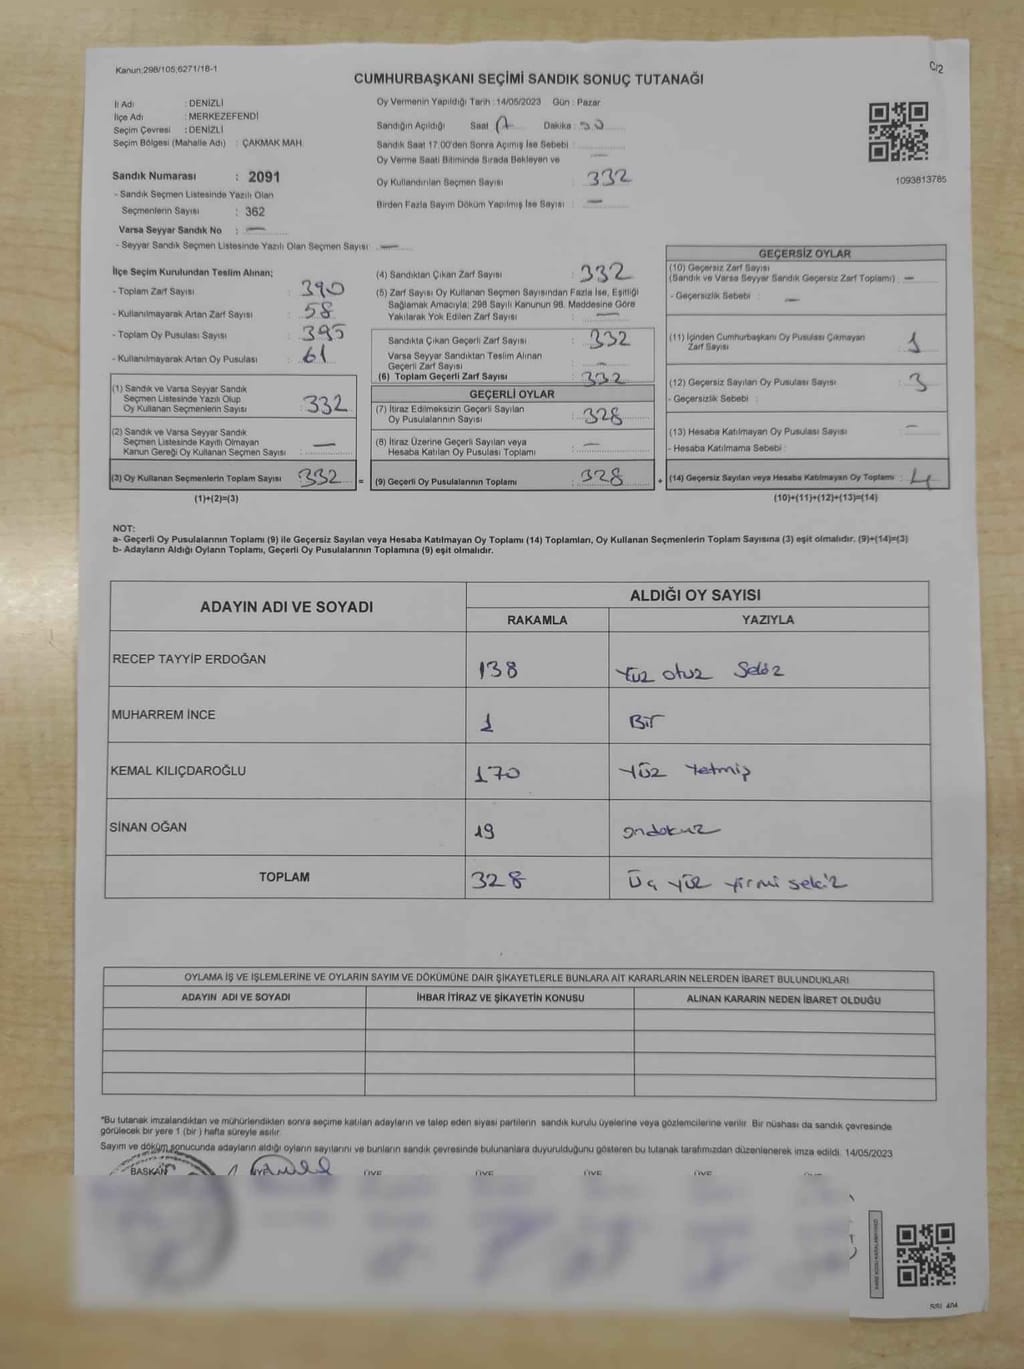 Kanun:298/105,6271/18-1
C/2
CUMHURBAŞKANI SEÇİMİ SANDIK SONUÇ TUTANAĞI
İl Adı : DENİZLİ
İlçe Adı : MERKEZEFENDİ
Seçim Çevresi : DENİZLİ
Seçim Bölgesi (Mahalle Adı) : ÇAKMAK MAH.
Oy Vermenin Yapıldığı Tarih : 14/05/2023 Gün : Pazar
Sandığın Açıldığı Saat Dakika :
Sandık Saat 17.00'den Sonra Açımış İse Sebebi :
Oy Verme Saati Bitiminde Sırada Bekleyen ve
Oy Kullandırılan Seçmen Sayısı : 332
Birden Fazla Sayım Döküm Yapılmış İse Sayısı : —
1093813785
Sandık Numarası : 2091
- Sandık Seçmen Listesinde Yazılı Olan
Seçmenlerin Sayısı : 362
Varsa Seyyar Sandık No : —
- Seyyar Sandık Seçmen Listesinde Yazılı Olan Seçmen Sayısı : —
İlçe Seçim Kurulundan Teslim Alınan;
- Toplam Zarf Sayısı : 390
- Kullanılmayarak Artan Zarf Sayısı : 58
- Toplam Oy Pusulası Sayısı : 395
- Kullanılmayarak Artan Oy Pusulası : 61
(1) Sandık ve Varsa Seyyar Sandık
Seçmen Listesinde Yazılı Olup
Oy Kullanan Seçmenlerin Sayısı : 332
(2) Sandık ve Varsa Seyyar Sandık
Seçmen Listesinde Kayıtlı Olmayan
Kanun Gereği Oy Kullanan Seçmen Sayısı : —
(3) Oy Kullanan Seçmenlerin Toplam Sayısı : 332
(1)+(2)=(3)
(4) Sandıktan Çıkan Zarf Sayısı : 332
(5) Zarf Sayısı Oy Kullanan Seçmen Sayısından Fazla İse, Eşitliği
Sağlamak Amacıyla; 298 Sayılı Kanunun 98. Maddesine Göre
Yakılarak Yok Edilen Zarf Sayısı : —
Sandıkta Çıkan Geçerli Zarf Sayısı : 332
Varsa Seyyar Sandıktan Teslim Alınan
Geçerli Zarf Sayısı : —
(6) Toplam Geçerli Zarf Sayısı : 332
GEÇERLİ OYLAR
(7) İtiraz Edilmeksizin Geçerli Sayılan
Oy Pusulalarının Sayısı : 328
(8) İtiraz Üzerine Geçerli Sayılan veya
Hesaba Katılan Oy Pusulası Toplamı : —
= (9) Geçerli Oy Pusulalarının Toplamı : 328
GEÇERSİZ OYLAR
(10) Geçersiz Zarf Sayısı
(Sandık ve Varsa Seyyar Sandık Geçersiz Zarf Toplamı) : —
- Geçersizlik Sebebi : —
(11) İçinden Cumhurbaşkanı Oy Pusulası Çıkmayan
Zarf Sayısı : 1
(12) Geçersiz Sayılan Oy Pusulası Sayısı : 3
- Geçersizlik Sebebi :
(13) Hesaba Katılmayan Oy Pusulası Sayısı : —
- Hesaba Katılmama Sebebi :
+ (14) Geçersiz Sayılan veya Hesaba Katılmayan Oy Toplamı : 4
(10)+(11)+(12)+(13)=(14)
NOT:
a- Geçerli Oy Pusulalarının Toplamı (9) ile Geçersiz Sayılan veya Hesaba Katılmayan Oy Toplamı (14) Toplamları, Oy Kullanan Seçmenlerin Toplam Sayısına (3) eşit olmalıdır. (9)+(14)=(3)
b- Adayların Aldığı Oyların Toplamı, Geçerli Oy Pusulalarının Toplamına (9) eşit olmalıdır.
ADAYIN ADI VE SOYADI
ALDIĞI OY SAYISI
RAKAMLA YAZIYLA
RECEP TAYYİP ERDOĞAN 138 Yüz otuz Sekiz
MUHARREM İNCE 1 Bir
KEMAL KILIÇDAROĞLU 170 Yüz Yetmiş
SİNAN OĞAN 19 ondokuz
TOPLAM 328 Üç yüz yirmi sekiz
OYLAMA İŞ VE İŞLEMLERİNE VE OYLARIN SAYIM VE DÖKÜMÜNE DAİR ŞİKAYETLERLE BUNLARA AİT KARARLARIN NELERDEN İBARET BULUNDUKLARI
ADAYIN ADI VE SOYADI İHBAR İTİRAZ VE ŞİKAYETİN KONUSU ALINAN KARARIN NEDEN İBARET OLDUĞU
*Bu tutanak imzalandıktan ve mühürlendikten sonra seçime katılan adayların ve talep eden siyasi partilerin sandık kurulu üyelerine veya gözlemcilerine verilir. Bir nüshası da sandık çevresinde
görülecek bir yere 1 (bir) hafta süreyle asılır.
Sayım ve döküm sonucunda adayların aldığı oyların sayılarını ve bunların sandık çevresinde bulunanlara duyurulduğunu gösteren bu tutanak tarafımızdan düzenlenerek imza edildi. 14/05/2023
BAŞKAN ÜYE ÜYE ÜYE